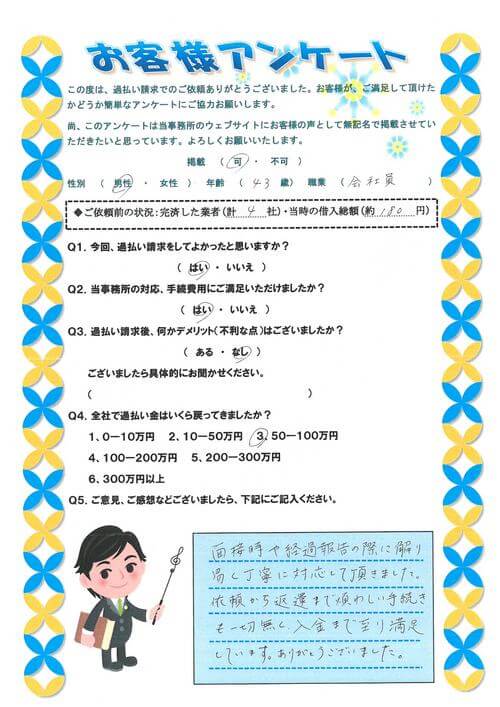 お客様アンケート
この度は、過払い請求でのご依頼ありがとうございました。お客様が、ご満足して頂けた
かどうか簡単なアンケートにご協力お願いします。
尚、このアンケートは当事務所のウェブサイトにお客様の声として無記名で掲載させてい
ただきたいと思っています。よろしくお願いいたします。
掲載 （ 可 ・ 不可 ）
性別 （ 男性 ・ 女性 ） 年齢 （ 43 歳） 職業 （ 会社員 ）
◆ご依頼前の状況：完済した業者（計 4 社）・当時の借入総額（約 180 円）
Q1. 今回、過払い請求をしてよかったと思いますか？
（ はい ・ いいえ ）
Q2. 当事務所の対応、手続費用にご満足いただけましたか？
（ はい ・ いいえ ）
Q3. 過払い請求後、何かデメリット（不利な点）はございましたか？
（ ある ・ なし ）
ございましたら具体的にお聞かせください。
（ ）
Q4. 全社で過払い金はいくら戻ってきましたか？
1、0－10万円 2、10－50万円 3、50－100万円
4、100－200万円 5、200－300万円
6、300万円以上
Q5. ご意見、ご感想などございましたら、下記にご記入ください。
面接時や経過報告の際に解り
易く丁寧に対応して頂きました。
依頼から返還まで煩わしい手続き
も一切無く、入金まで至り満足
しています。ありがとうございました。